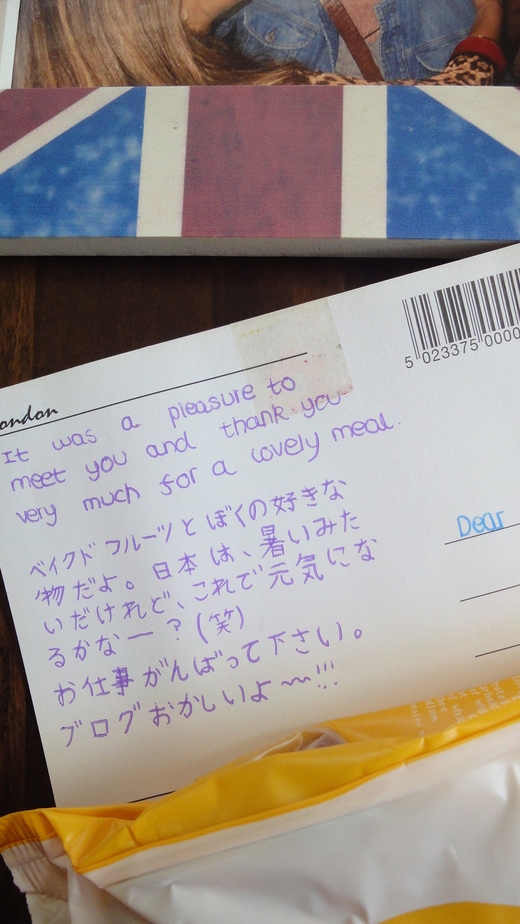 ondon
It was a pleasure to
meet you and thank you
very much for a lovely meal.
ベイクド フルーツと ぼくの好きな
物だよ。日本は、暑いみた
いだけれど、これで元気にな
るかなー?(笑)
お仕事がんばって下さい。
ブログおかしいよ〜!!!
5 023375 0000
Dear